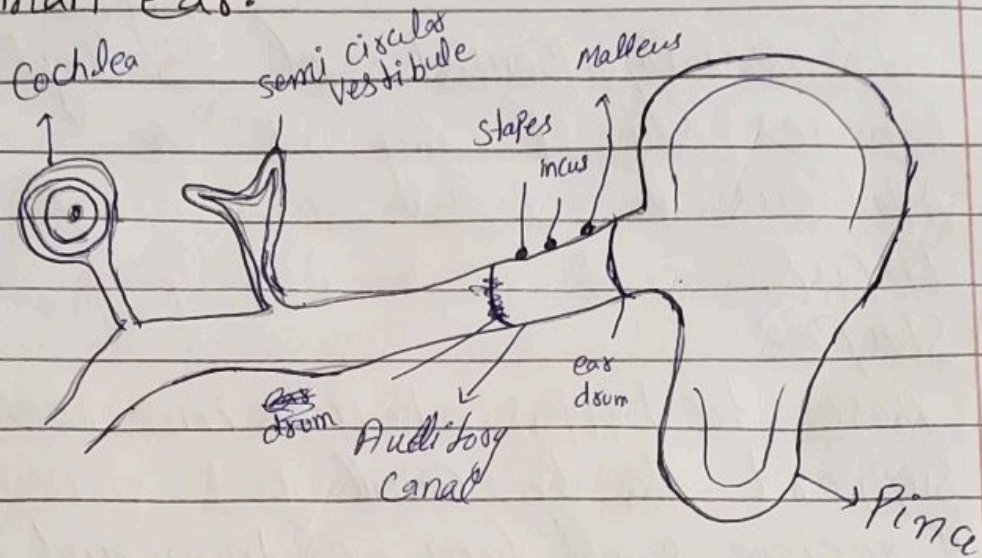 Ear.
Cochlea
semi circular
vestibule
Malleus
Stapes
incus
ear
drum
drum
Auditory
Canal
Pina